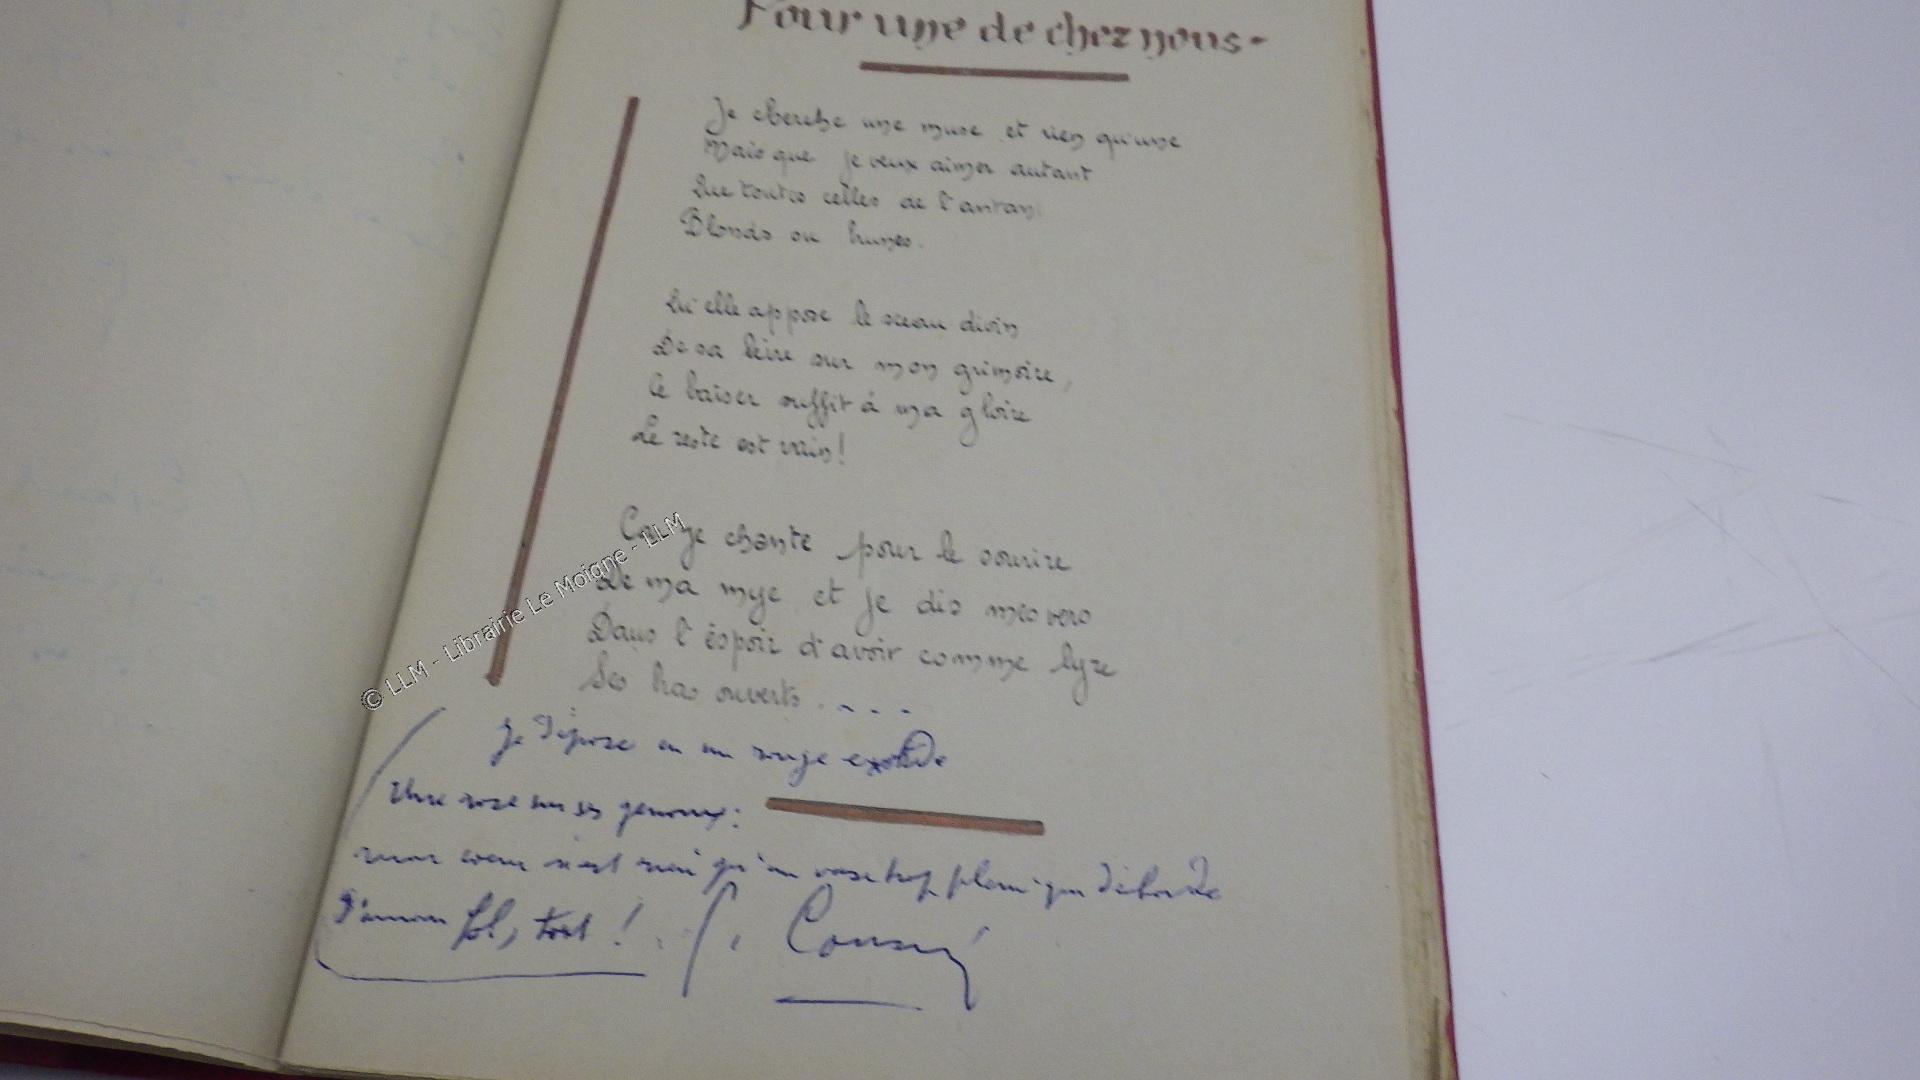 Pour une de chez nous -
Je cherche une muse et rien qu'une
Mais que je veux aimer autant
Que toutes celles de l'antan
Blonds ou brunes.
Qu'elle appose le sceau divin
De sa lèvre sur mon grimoire,
Ce baiser suffit à ma gloire
Le reste est vain!
Car je chante pour le sourire
De ma mye et je dis mes vers
Dans l'éspoir d'avoir comme lyre
Ses bras ouverts....
Je dépose en un rouge exorde
Une rose sur ses genoux:
mon coeur n'est rien qu'un vase trop plein qui déborde
D'amour fol, tout!
© LLM - Librairie Le Moigne - LLM